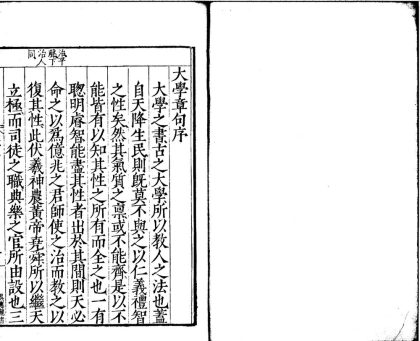 大學章句序
大學之書古之大學所以教人之法也蓋
自天降生民則旣莫不與之以仁義禮智
之性矣然其氣質之禀或不能齊是以不
能皆有以知其性之所有而全之也一有
聦明睿智能盡其性者出於其閒則天必
命之以爲億兆之君師使之治而教之以
復其性此伏羲神農黃帝堯舜所以繼天
立極而司徒之職典樂之官所由設也三